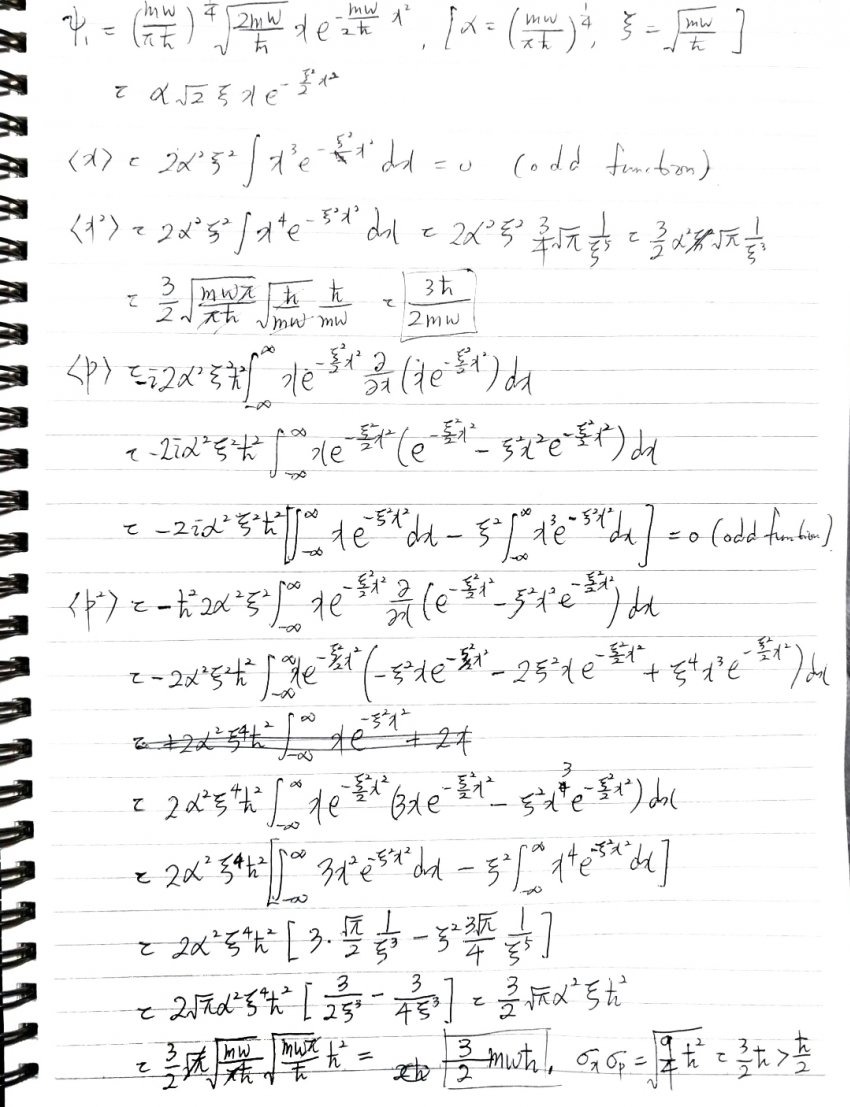 ψ₁ = (mω/πħ)^(1/4) √(2mω/ħ) x e^(-(mω/2ħ) x²), [α = (mω/πħ)^(1/4), ξ = √(mω/ħ)]
= α√2 ξ x e^(-(ξ²/2)x²)
⟨x⟩ = 2α²ξ² ∫ x³ e^(-ξ²x²) dx = 0 (odd function)
⟨x²⟩ = 2α²ξ² ∫ x⁴ e^(-ξ²x²) dx = 2α²ξ² (3/4)√π (1/ξ⁵) = (3/2) α² √π (1/ξ³)
= (3/2) √(mωπ/πħ) √(ħ/mω) (ħ/mω) = 3ħ/2mω
⟨p⟩ = -i2α²ξ²ħ² ∫_{-∞}^{∞} x e^(-(ξ²/2)x²) ∂/∂x (x e^(-(ξ²/2)x²)) dx
= -2iα²ξ²ħ² ∫_{-∞}^{∞} x e^(-(ξ²/2)x²) (e^(-(ξ²/2)x²) - ξ²x² e^(-(ξ²/2)x²)) dx
= -2iα²ξ²ħ² [∫_{-∞}^{∞} x e^(-ξ²x²) dx - ξ² ∫_{-∞}^{∞} x³ e^(-ξ²x²) dx] = 0 (odd function)
⟨p²⟩ = -ħ² 2α²ξ² ∫_{-∞}^{∞} x e^(-(ξ²/2)x²) ∂/∂x (e^(-(ξ²/2)x²) - ξ²x² e^(-(ξ²/2)x²)) dx
= -2α²ξ²ħ² ∫_{-∞}^{∞} x e^(-(ξ²/2)x²) (-ξ²x e^(-(ξ²/2)x²) - 2ξ²x e^(-(ξ²/2)x²) + ξ⁴x³ e^(-(ξ²/2)x²)) dx
= +2α²ξ⁴ħ² ∫_{-∞}^{∞} x e^(-ξ²x²) + 2x
= 2α²ξ⁴ħ² ∫_{-∞}^{∞} x e^(-(ξ²/2)x²) (3x e^(-(ξ²/2)x²) - ξ²x³ e^(-(ξ²/2)x²)) dx
= 2α²ξ⁴ħ² [∫_{-∞}^{∞} 3x² e^(-ξ²x²) dx - ξ² ∫_{-∞}^{∞} x⁴ e^(-ξ²x²) dx]
= 2α²ξ⁴ħ² [3·(√π/2)(1/ξ³) - ξ² (3√π/4)(1/ξ⁵)]
= 2√π α²ξ⁴ħ² [3/2ξ³ - 3/4ξ³] = (3/2)√π α²ξħ²
= (3/2) √π √(mω/πħ) √(mω/ħ) ħ² = (3/2) mωħ, σₓσₚ = √((9/4)ħ²) = (3/2)ħ > ħ/2